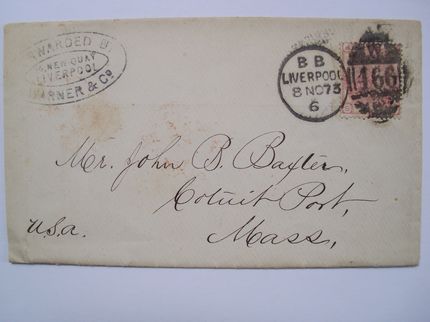 FORWARDED B
NEW QUAY
LIVERPOOL
WARNER & Co
B B
LIVERPOOL
8 NO 73
6
466
Mr. John B. Baxter,
Cotuit Port,
Mass,
U.S.A.